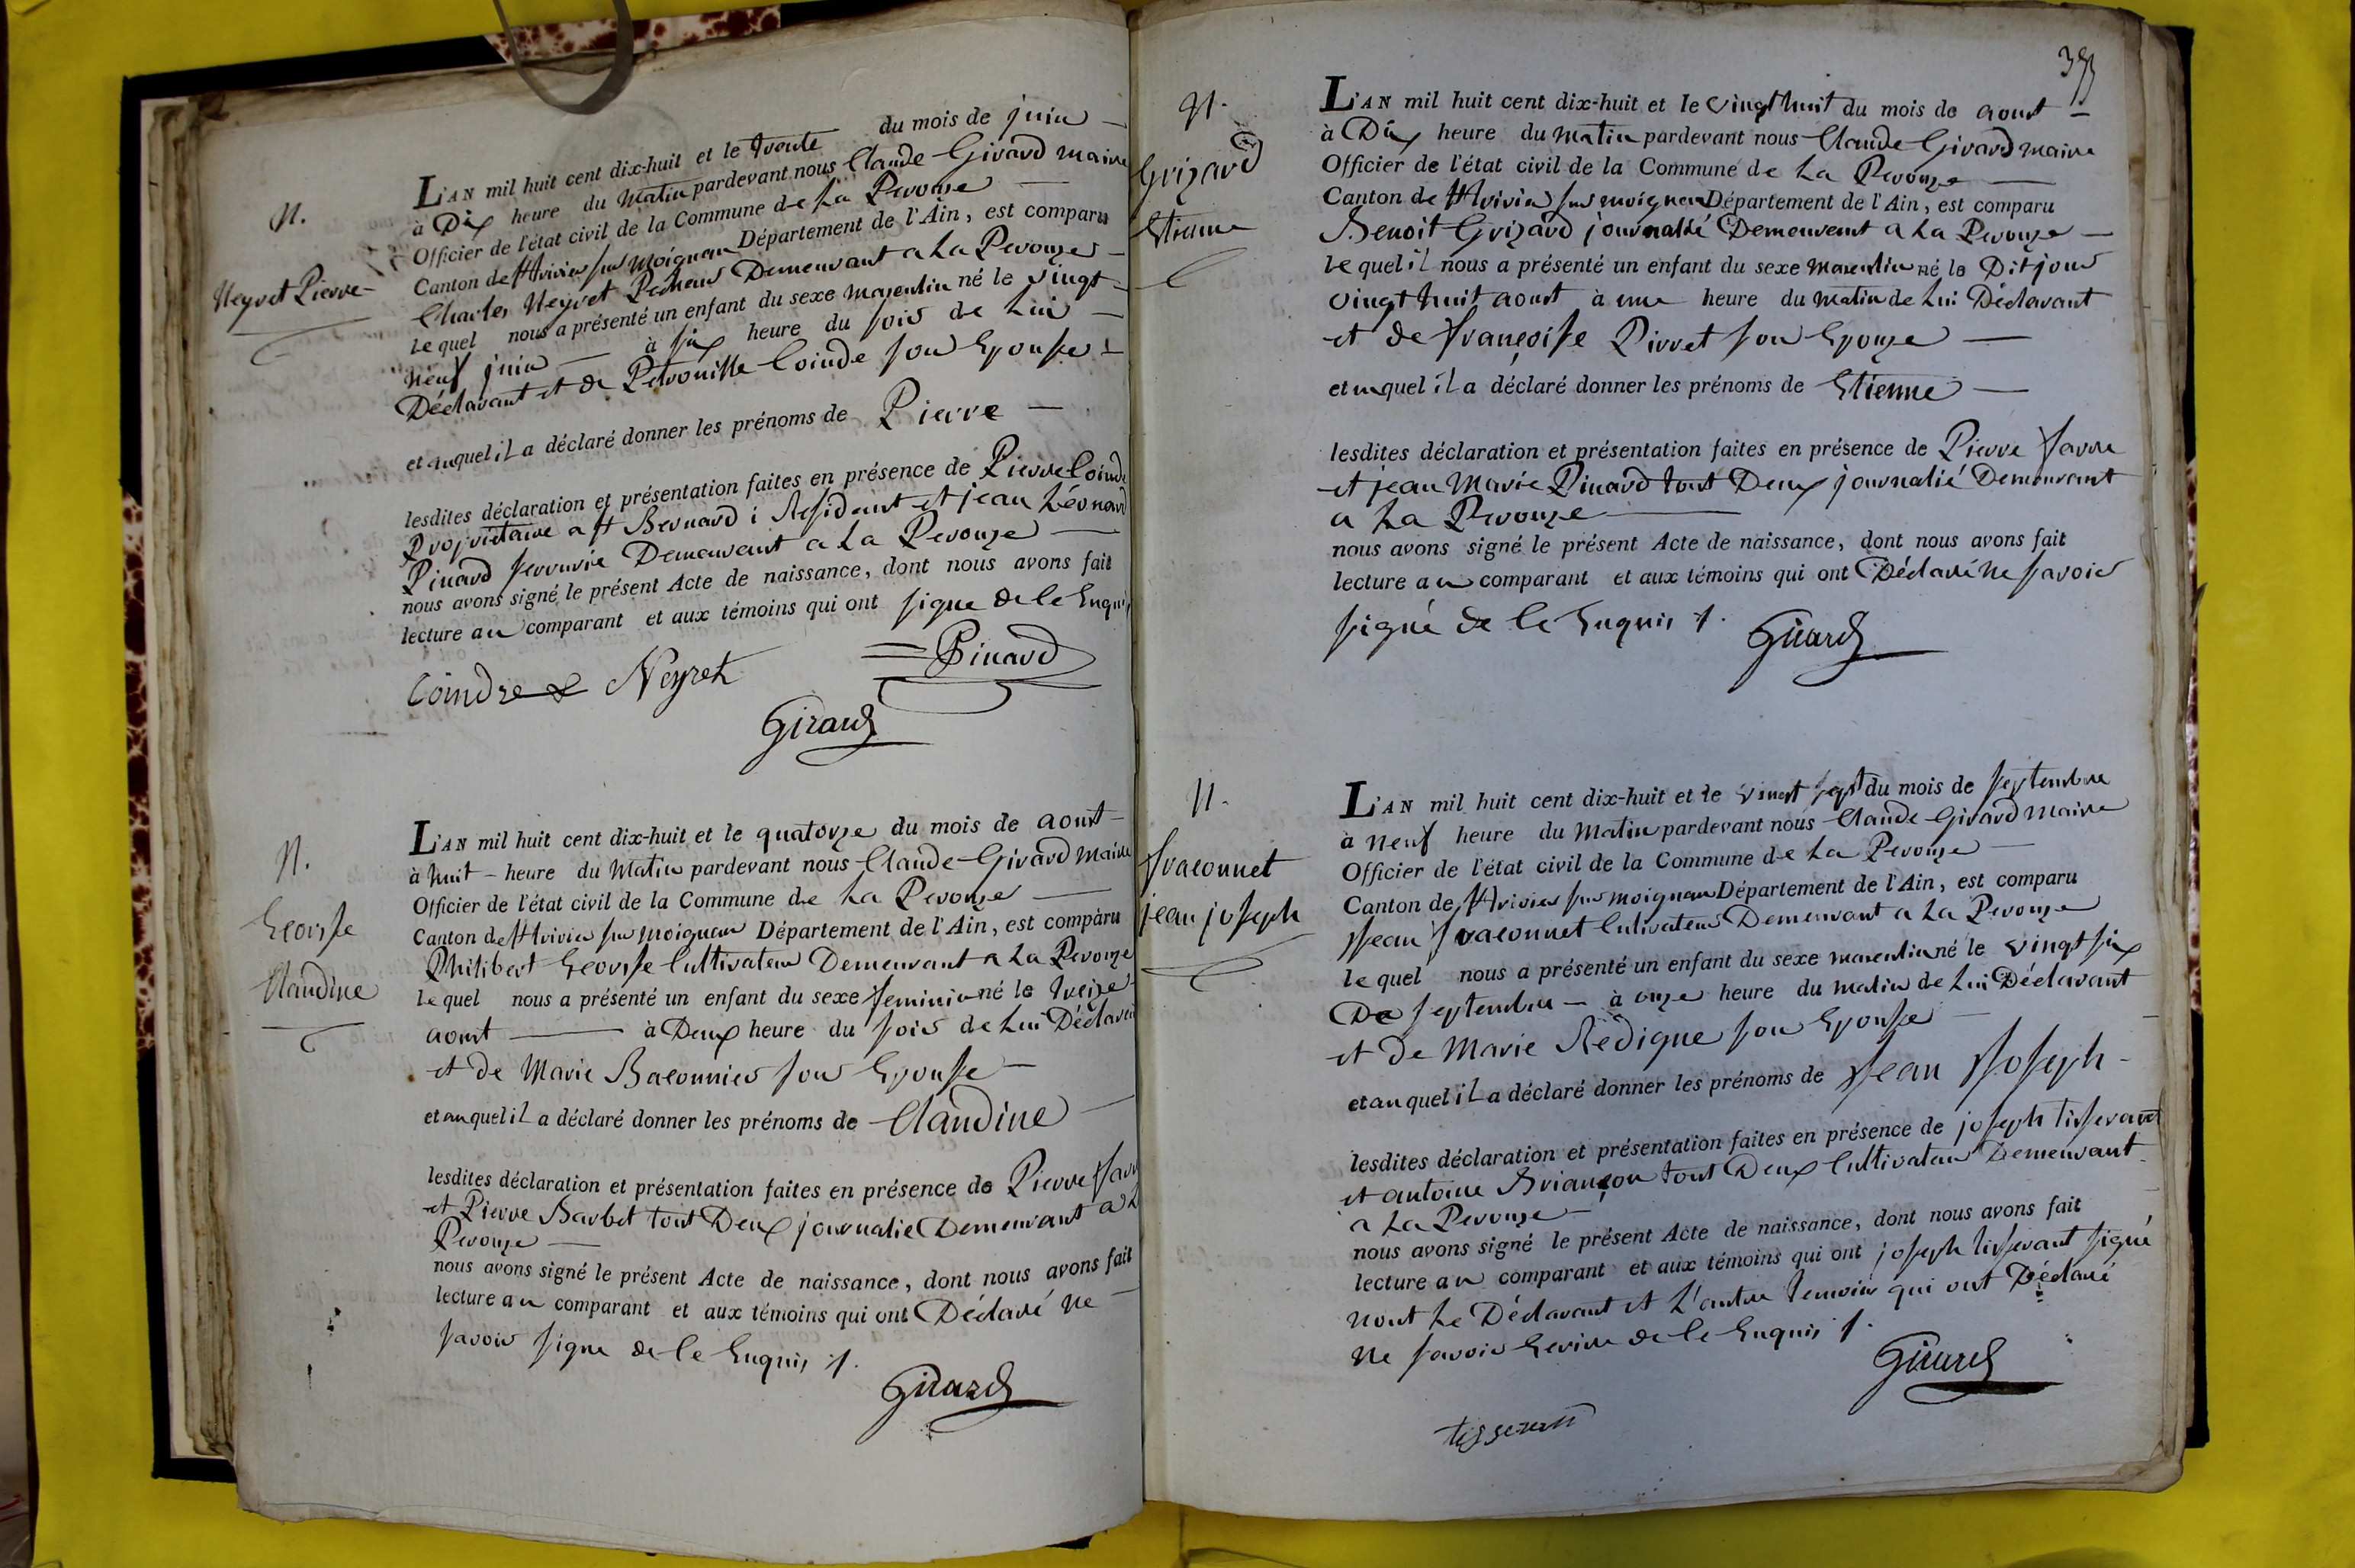 N.
Neyret Pierre
L'AN mil huit cent dix-huit et le trente du mois de juin
à Dix heure du Matin pardevant nous Claude Girard maire
Officier de l'état civil de la Commune de La Perouze
Canton de St trivier sur moignan Département de l'Ain, est comparu
Charles Neyret Demeurant a La Perouze
Le quel nous a présenté un enfant du sexe masculin né le vingt
neuf juin à six heure du soir de Lui
Déclarant et de Petronille Coindre son Epouse
et auquel il a déclaré donner les prénoms de Pierre
lesdites déclaration et présentation faites en présence de Pierre Coindre
Proprietaire a St Bernard i Resident et jean Léonard
Pinard serrurié Demeurant a La Perouze
nous avons signé le présent Acte de naissance, dont nous avons fait
lecture au comparant et aux témoins qui ont signe de le Enquis
Coindre Neyret Pinard
Girard
N.
George
Claudine
L'AN mil huit cent dix-huit et le quatorze du mois de aoust
à huit heure du Matin pardevant nous Claude Girard Maire
Officier de l'état civil de la Commune de La Perouze
Canton de St trivier sur moignan Département de l'Ain, est comparu
Philibert George Cultivateur Demeurant a La Perouze
Le quel nous a présenté un enfant du sexe feminin né le treize
aoust à Deux heure du soir de Lui Déclarant
et de Marie Baconnier son Epouse
et auquel il a déclaré donner les prénoms de Claudine
lesdites déclaration et présentation faites en présence de Pierre favre
et Pierre Barbet tout Deux journalié Demeurant a La
Perouze
nous avons signé le présent Acte de naissance, dont nous avons fait
lecture au comparant et aux témoins qui ont Déclaré ne
savoir signe de le Enquis ./.
Girard
N.
Grizard
Etienne
L'AN mil huit cent dix-huit et le vingt huit du mois de aoust
à Dix heure du Matin pardevant nous Claude Girard maire
Officier de l'état civil de la Commune de La Perouze
Canton de St trivier sur moignan Département de l'Ain, est comparu
Benoit Grizard journalié Demeurant a La Perouze
Le quel il nous a présenté un enfant du sexe masculin né le Dit jour
vingt huit aoust à une heure du matin de Lui Déclarant
et de françoise Pirret son Epouze
et auquel il a déclaré donner les prénoms de Etienne
lesdites déclaration et présentation faites en présence de Pierre favre
et jean Marie Pinard tout Deux journalié Demeurant
a La Perouze
nous avons signé le présent Acte de naissance, dont nous avons fait
lecture au comparant et aux témoins qui ont Déclaré ne savoir
signé de le Enquis ./.
Girard
N.
fraconnet
jean joseph
L'AN mil huit cent dix-huit et le vingt sept du mois de septembre
à neuf heure du Matin pardevant nous Claude Girard maire
Officier de l'état civil de la Commune de La Perouze
Canton de St trivier sur moignan Département de l'Ain, est comparu
jean fraconnet Cultivateur Demeurant a La Perouze
le quel nous a présenté un enfant du sexe masculin né le vingt six
De septembre à onze heure du matin de Lui Déclarant
et de Marie Rédigue son Epouse
et auquel il a déclaré donner les prénoms de jean joseph
lesdites déclaration et présentation faites en présence de joseph tisserand
et antoine Briançon tout Deux Cultivateur Demeurant
a La Perouze
nous avons signé le présent Acte de naissance, dont nous avons fait
lecture au comparant et aux témoins qui ont joseph tisserant signé
nont Le Déclarant et L'autre temoin qui ont Déclaré
ne savoir Ecrire de le Enquis ./.
Girard
tisseran